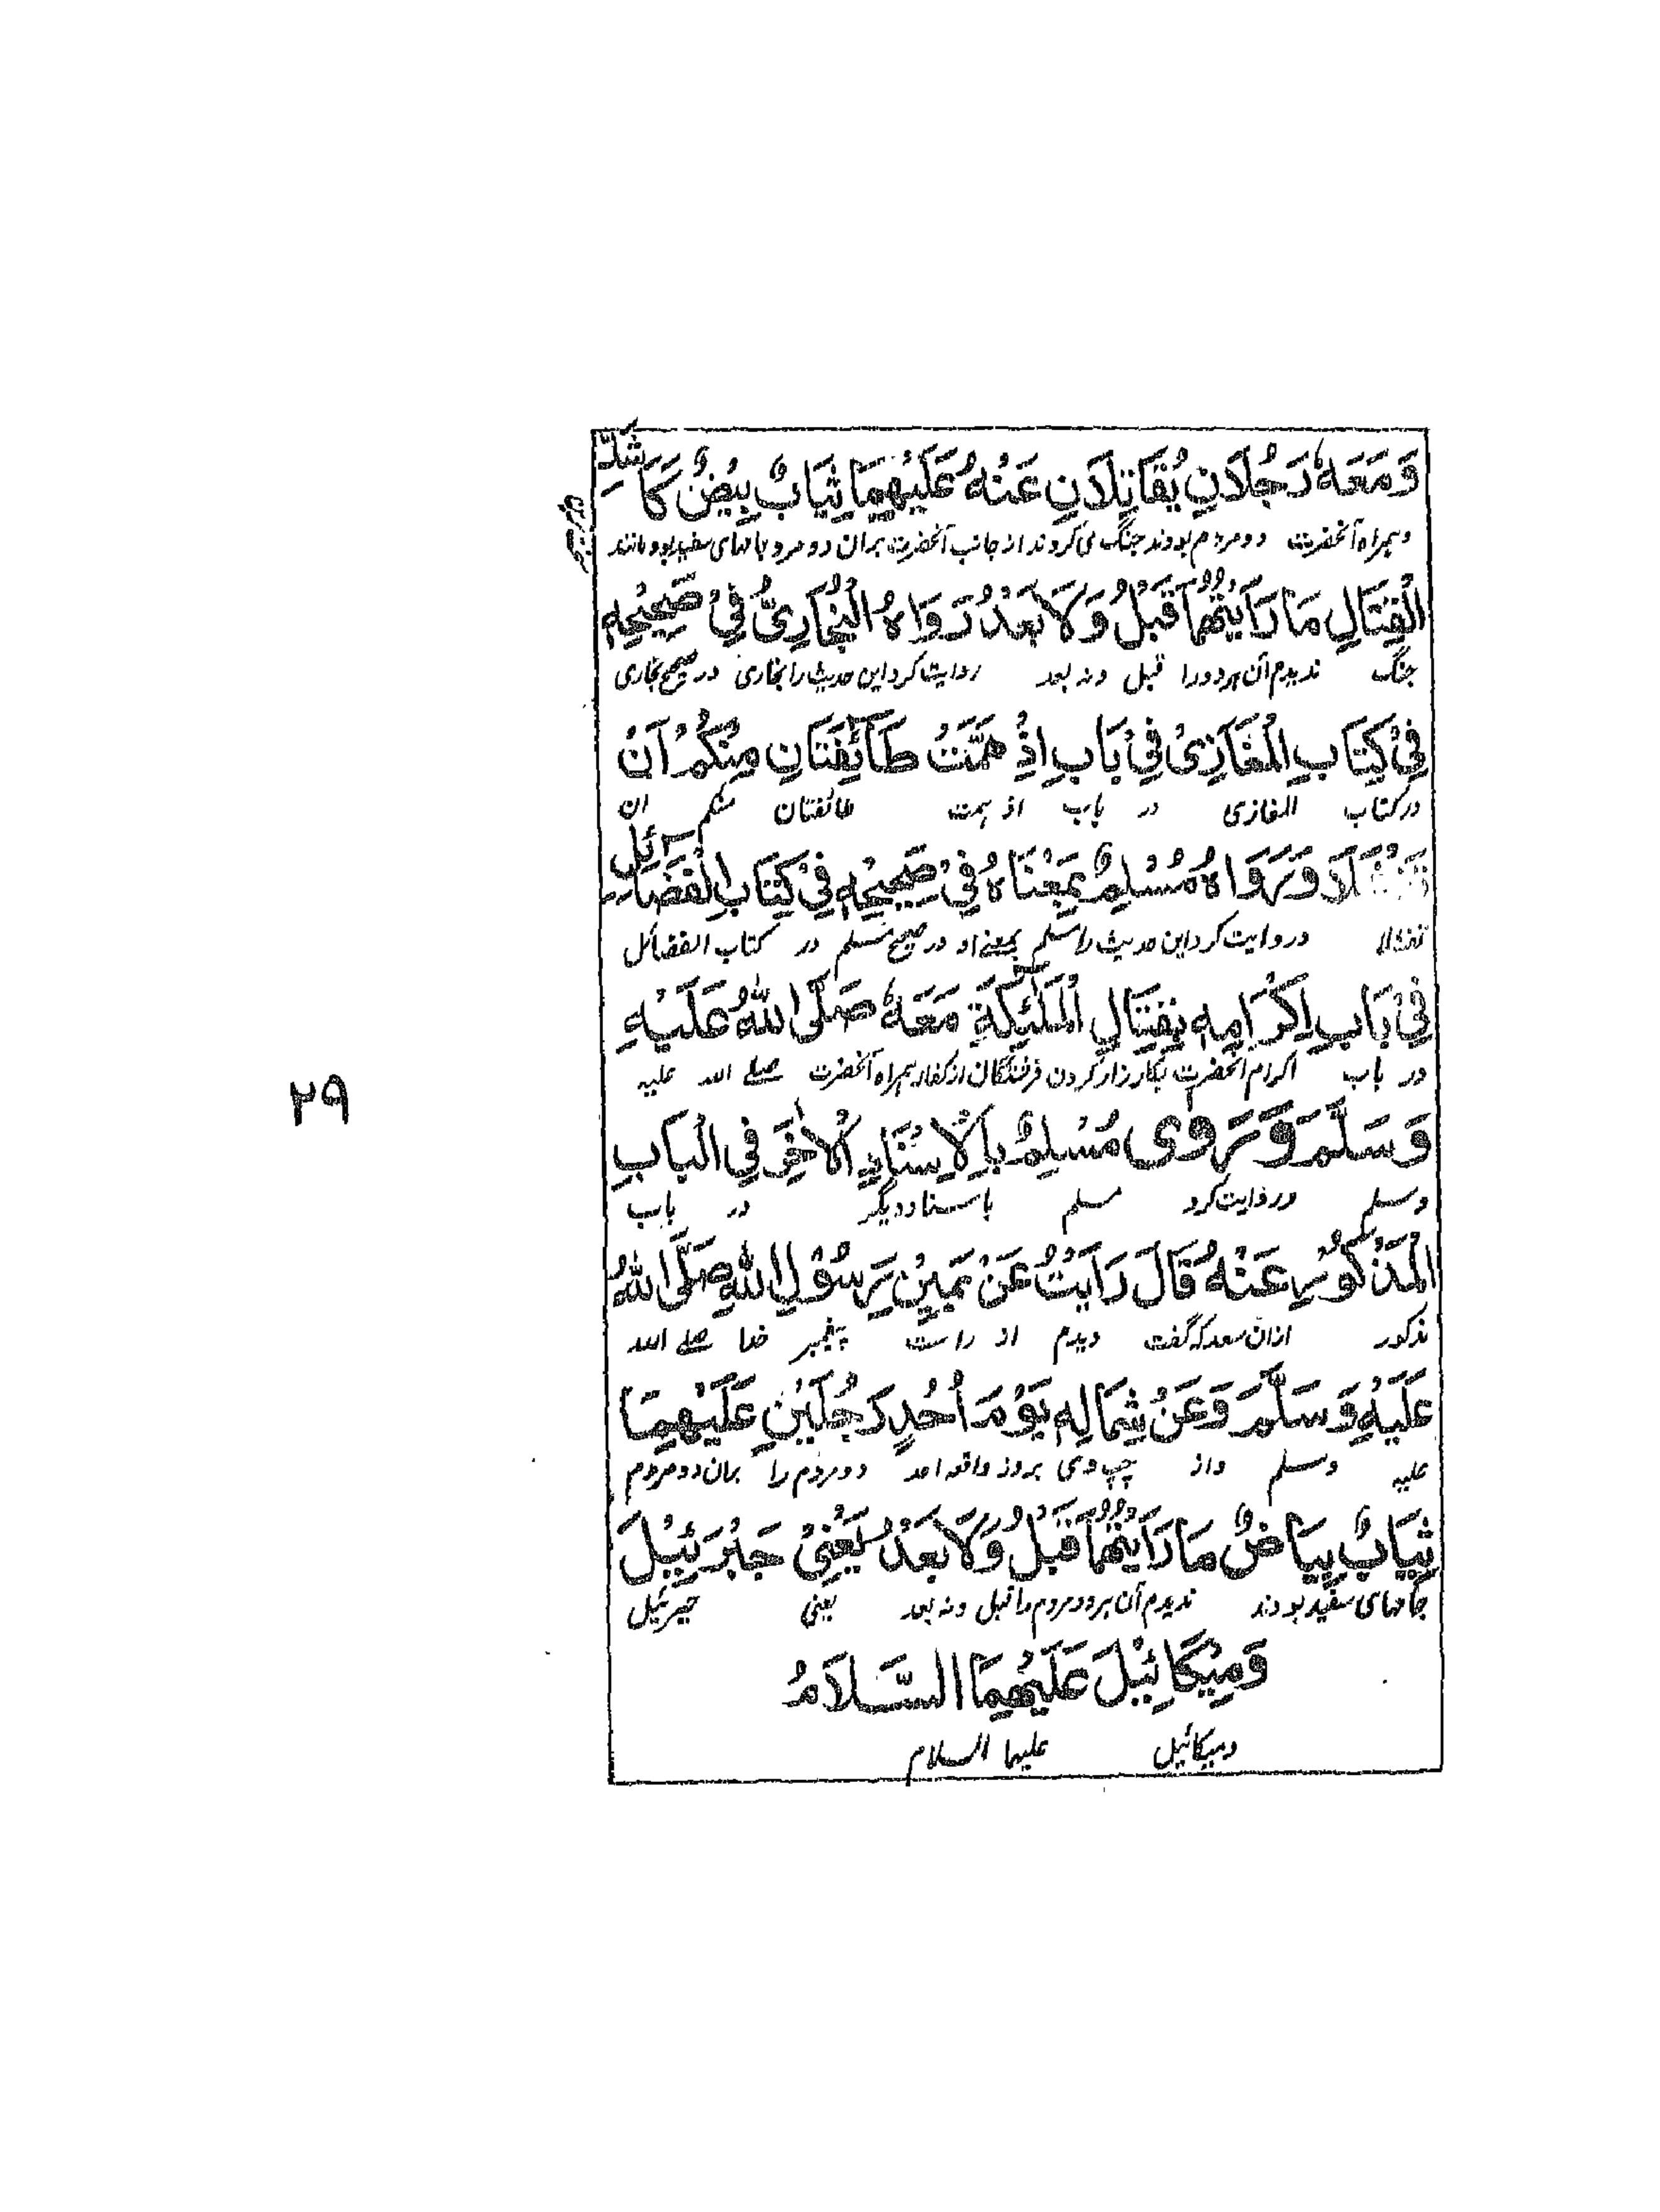 وَمَعَهٗ رَجُلَانِ يُقَاتِلَانِ عَنْهُ عَلَيْهِمَا ثِيَابٌ بِيْضٌ كَاَشَدِّ
وہمراہ آنحضرت دو مردم بودند جنگ می کردند از جانب آنحضرت بران دو مرد جامهای سفید بود مانند
الْقِتَالِ مَا رَاَيْتُهُمَا قَبْلُ وَلَا بَعْدُ رَوَاهُ الْبُخَارِیُّ فِیْ صَحِيْحِهٖ
جنگ ندیدم آن ہر دو را قبل ونہ بعد روایت کرد این حدیث را بخاری در صحیح بخاری
فِیْ كِتَابِ الْمَغَازِیْ فِیْ بَابِ اِذْ هَمَّتْ طَآئِفَتَانِ مِنْكُمْ اَنْ
در کتاب المغازی در باب اذ ہمت طائفتان منکم ان
تَفْشَلَا وَرَوَاهُ مُسْلِمٌ بِمَعْنَاهُ فِیْ صَحِيْحِهٖ فِیْ كِتَابِ الْفَضَائِلِ
تفشلا وروایت کرد این حدیث را مسلم بمعنے او در صحیح مسلم در کتاب الفضائل
فِیْ بَابِ اِكْرَامِهٖ بِقِتَالِ الْمَلٰٓئِكَةِ مَعَهٗ صَلَّی اللّٰهُ عَلَيْهِ
در باب اکرام آنحضرت بکارزار کردن فرشتگان از کفار ہمراہ آنحضرت صلے اللہ علیہ
وَسَلَّمَ وَرَوٰی مُسْلِمٌ بِالْاِسْنَادِ الْاٰخَرِ فِی الْبَابِ
وسلم وروایت کرد مسلم باسناد دیگر در باب
الْمَذْكُوْرِ عَنْهُ قَالَ رَاَيْتُ عَنْ يَمِيْنِ رَسُوْلِ اللّٰهِ صَلَّی اللّٰهُ
مذکور ازان سعد کہ گفت دیدم از راست پیغمبر خدا صلے اللہ
عَلَيْهِ وَسَلَّمَ وَعَنْ شِمَالِهٖ يَوْمَ اُحُدٍ رَجُلَيْنِ عَلَيْهِمَا
علیہ وسلم واز چپ وی بروز واقعہ احد دو مردم را بران دو مردم
ثِيَابُ بَيَاضٌ مَا رَاَيْتُهُمَا قَبْلُ وَلَا بَعْدُ يَعْنِیْ جَبْرَئِيْلَ
جامهای سفید بودند ندیدم آن ہر دو مردم را قبل ونہ بعد یعنی جبرئیل
وَمِيْكَائِيْلَ عَلَيْهِمَا السَّلَامُ
ومیکائیل علیہما السلام
۲۹